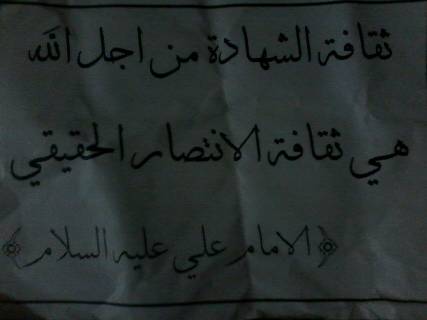 ثقافة الشهادة من اجل الله
هي ثقافة الانتصار الحقيقي
﴿الامام علي عليه السلام﴾